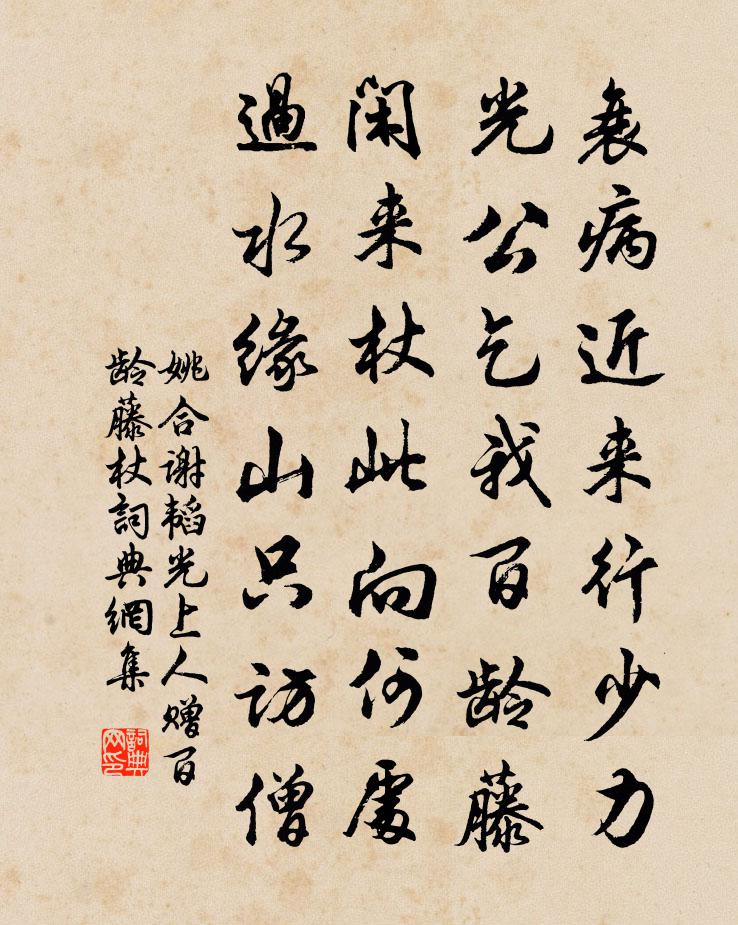 衰病近来行少力
光公乞我百龄藤
闲来杖此向何处
過水缘山只访僧
姚合谢韬光上人赠百
龄藤杖詞典網集
詞典
网印